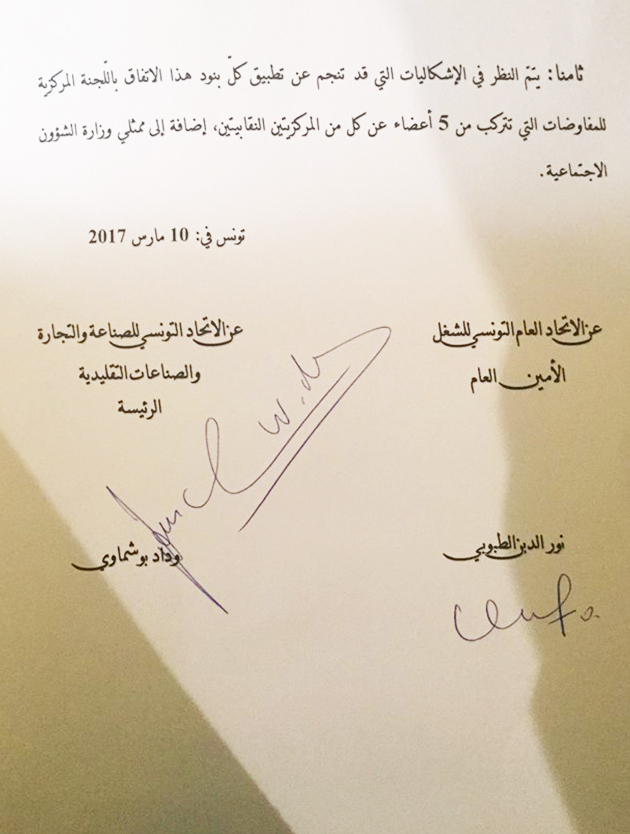 ثامنا: يتمّ النظر في الإشكاليات التي قد تنجم عن تطبيق كلّ بنود هذا الاتفاق باللّجنة المركزية
للمفاوضات التي تتركب من 5 أعضاء عن كل من المركزيتين النقابيتين، إضافة إلى ممثلي وزارة الشؤون
الاجتماعية.
تونس في: 10 مارس 2017
عن الاتحاد العام التونسي للشغل
الأمين العام
نور الدين الطبوبي
عن الاتحاد التونسي للصناعة والتجارة
والصناعات التقليدية
الرئيسة
وداد بوشماوي